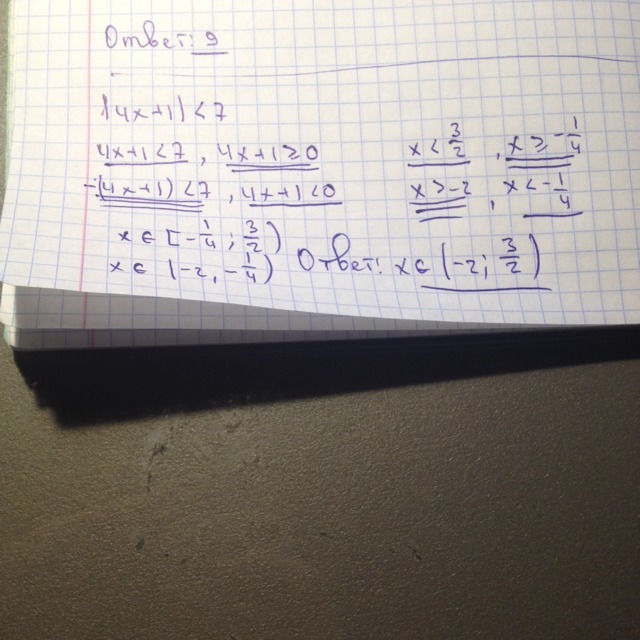 Ответ: 9
|4x+1|<7
4x+1<7, 4x+1≥0 x<3/2, x≥-1/4
-(4x+1)<7, 4x+1<0 x>-2, x<-1/4
x∈[-1/4; 3/2)
x∈(-2, -1/4) Ответ: x∈(-2; 3/2)